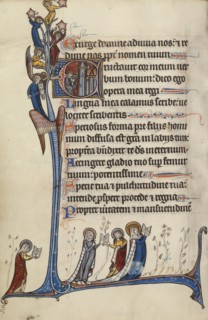 Exurge domine adiuva nos: & re
dime nos ppt nomen tuum
Eructauit cor meum uer
bum bonum: dico ego
opera mea regi
Lingua mea calamus scribe: ue
lociter scribentis
Speciosus forma pre filiis homi
num diffusa est gra in labiis tuis
propterea bndixit te ds in eternum
Accingere gladio tuo sup femur
tuum: potentissime
Specie tua & pulchritudine tua:
intende pspere procede & regna
Propter ueritatem & mansuetudinē